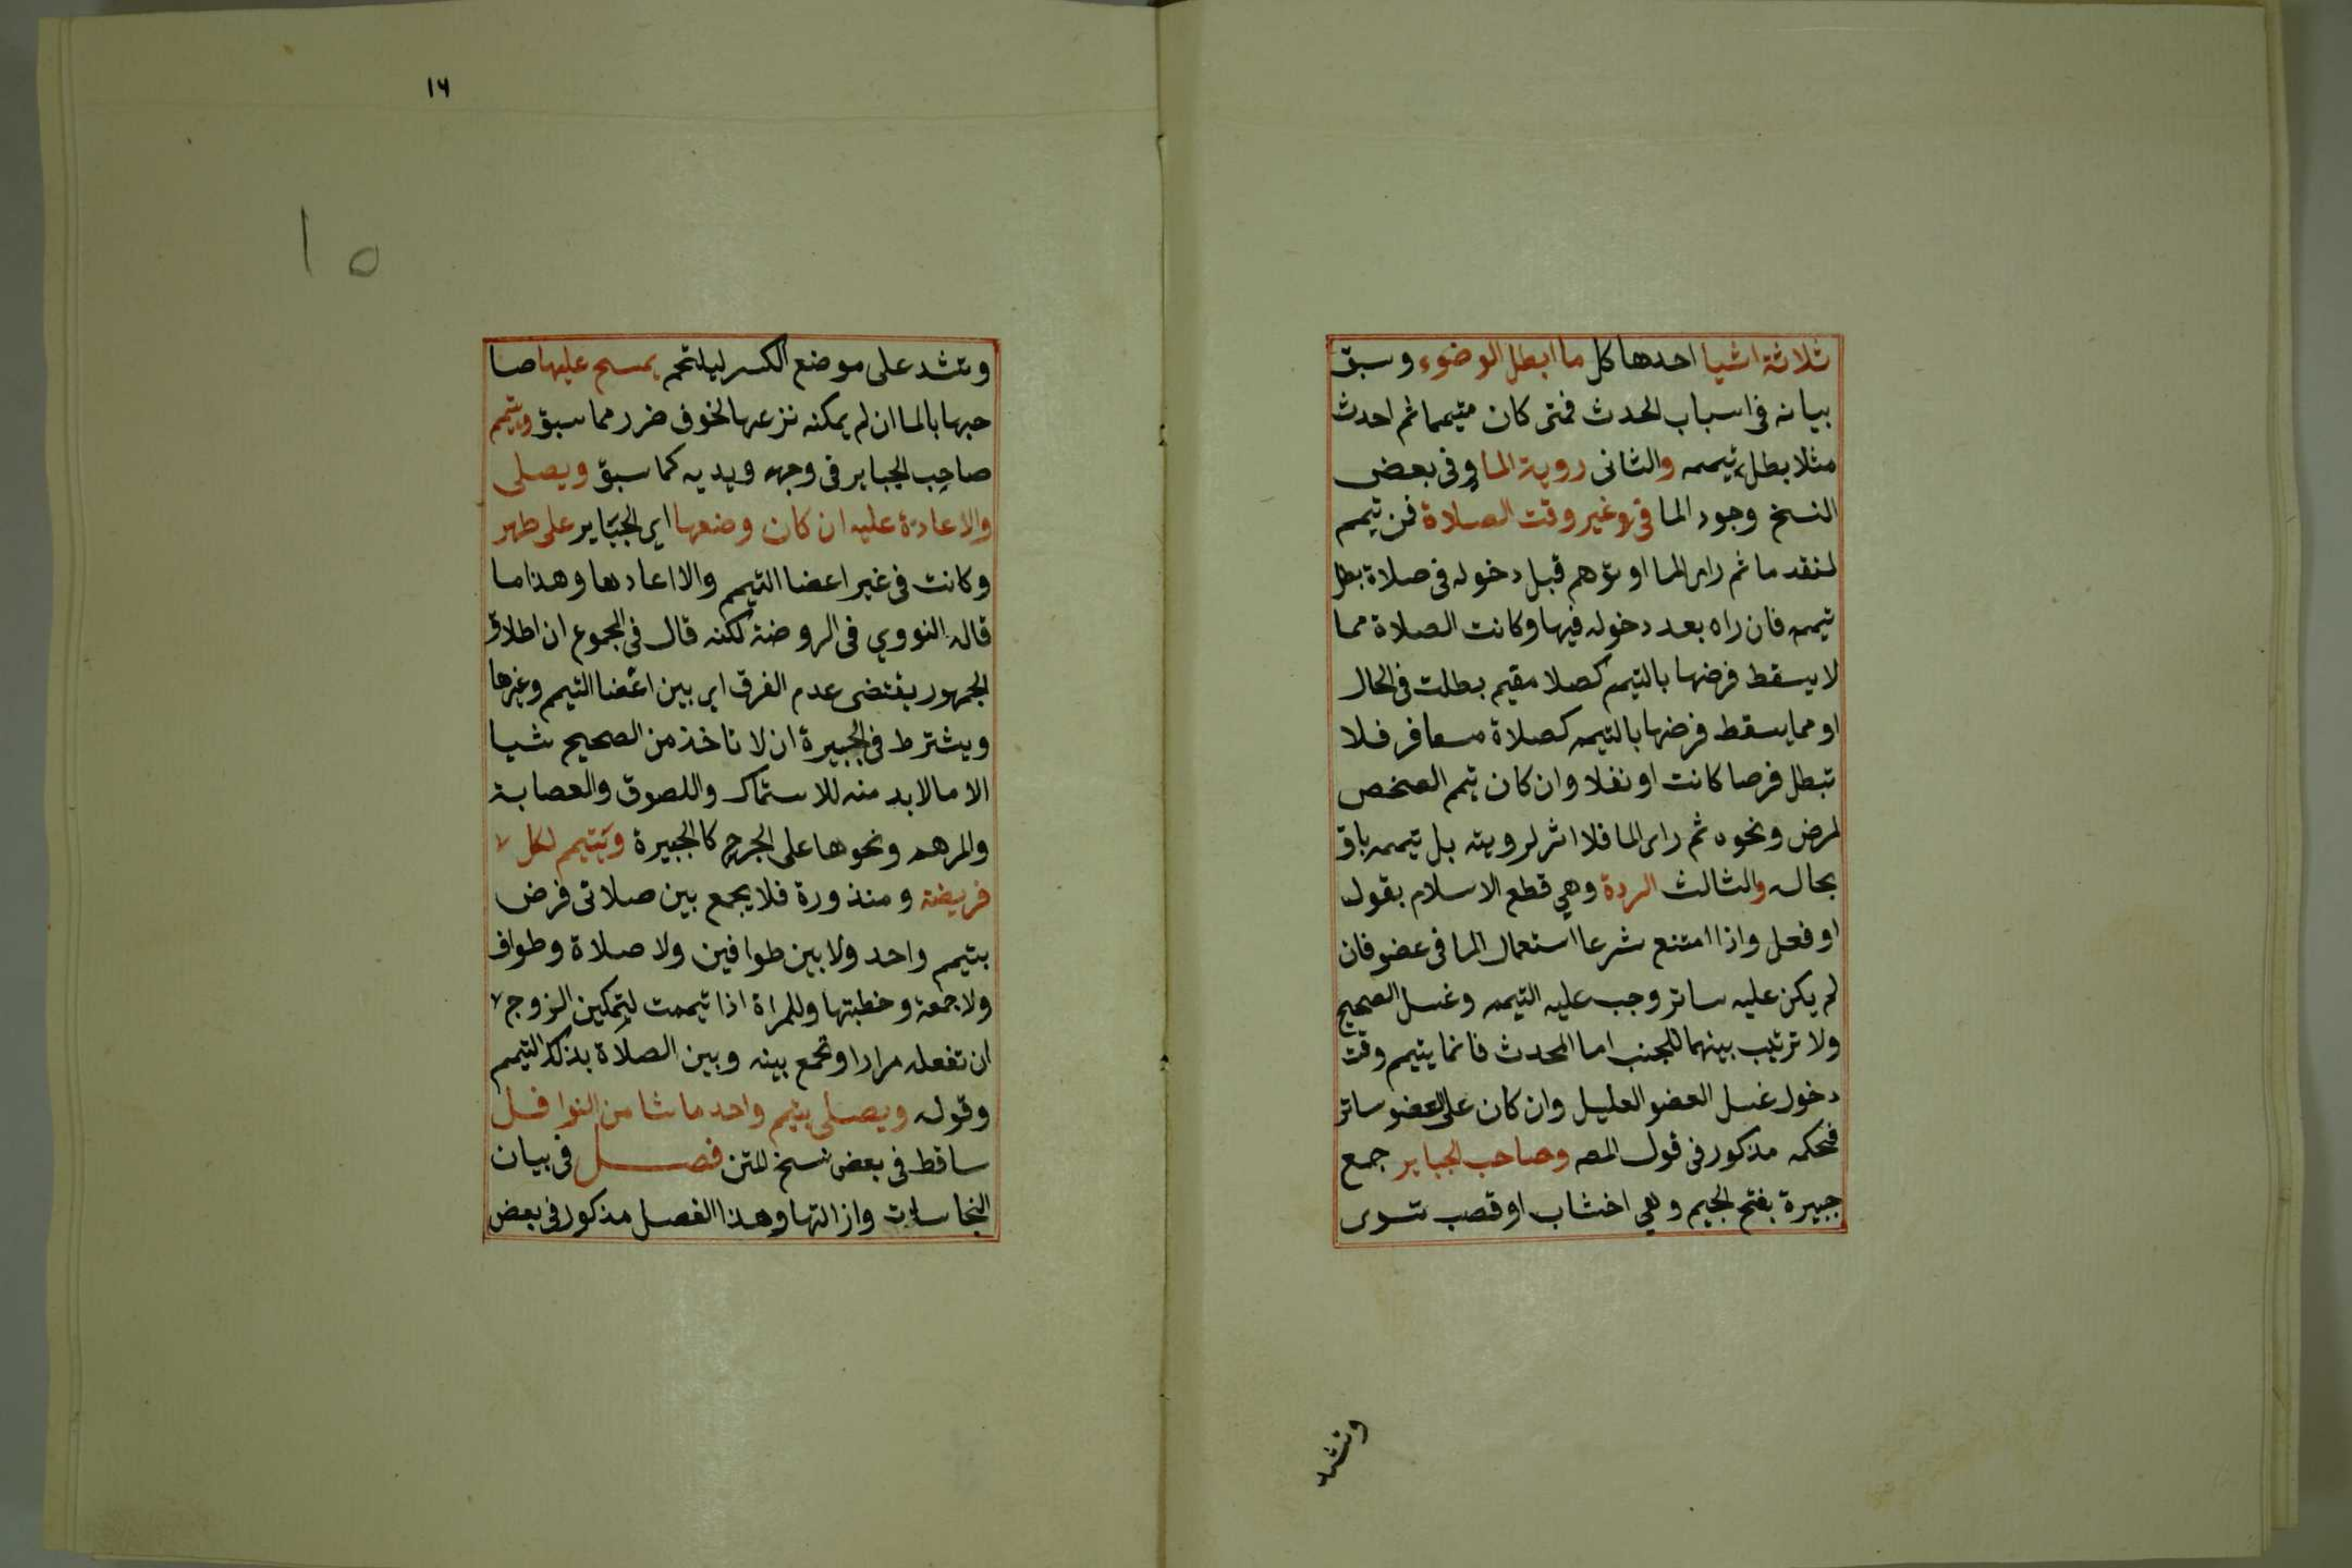 ثلاثة اشيا احدها كل ما ابطل الوضوء وسبق
بيانه فى اسباب الحدث فمتى كان متيمما ثم احدث
مثلا بطل تيممه والثانى روية الما وفى بعض
النسخ وجود الما فى غير وقت الصلاة فمن تيمم
لفقد ما ثم راى الما او توهم قبل دخوله فى صلاة بطل
تيممه فان راه بعد دخوله فيها وكانت الصلاة مما
لا يسقط فرضها بالتيمم كصلا مقيم بطلت فى الحال
او مما يسقط فرضها بالتيمم كصلاة مسافر فلا
تبطل فرضا كانت او نفلا وان كان تيمم الشخص
لمرض ونحوه ثم راى الما فلا اثر لرويته بل تيممه باق
بحاله والثالث الردة وهي قطع الاسلام بقول
او فعل واذا امتنع شرعا استعمال الما فى عضو فان
لم يكن عليه ساتر وجب عليه التيمم وغسل الصحيح
ولا ترتيب بينهما للجنب اما المحدث فانما يتيمم وقت
دخول غسل العضو العليل وان كان على العضو ساتر
فحكمه مذكور فى قول المصه وصاحب الجباير جمع
جبيرة بفتح الجيم وهي اخشاب او قصب تسوى
وتشد
١٦
١٥
وتشد على موضع الكسر ليلتحم يمسح عليها صا
حبها بالما ان لم يمكنه نزعها لخوف ضرر مما سبق ويتيمم
صاحب الجباير فى وجهه ويديه كما سبق ويصلى
والا عادة عليه ان كان وضعها اي الجباير على طهر
وكانت فى غير اعضا التيمم والا اعادها وهذا ما
قاله النووي فى الروضة لكنه قال فى المجموع ان اطلاق
الجمهور يقتضى عدم الفرق اى بين اعضا التيمم وغيرها
ويشترط فى الجبيرة ان لا تاخذ من الصحيح شيا
الا ما لا بد منه للاستمساك واللصوق والعصابة
والمرهم ونحوها على الجرح كالجبيرة ويتيمم لكل
فريضة ومنذورة فلا يجمع بين صلاتى فرض
بتيمم واحد ولا بين طوافين ولا صلاة وطواف
ولا جمعة وخطبتها وللمراة اذا تيممت لتمكين الزوج
ان تفعله مرارا وتجمع بينه وبين الصلاة بذلك التيمم
وقوله ويصلى بتيمم واحد ما شا من النوافل
ساقط فى بعض نسخ المتن فصل فى بيان
النجاسات وازالتها وهذا الفصل مذكور فى بعض